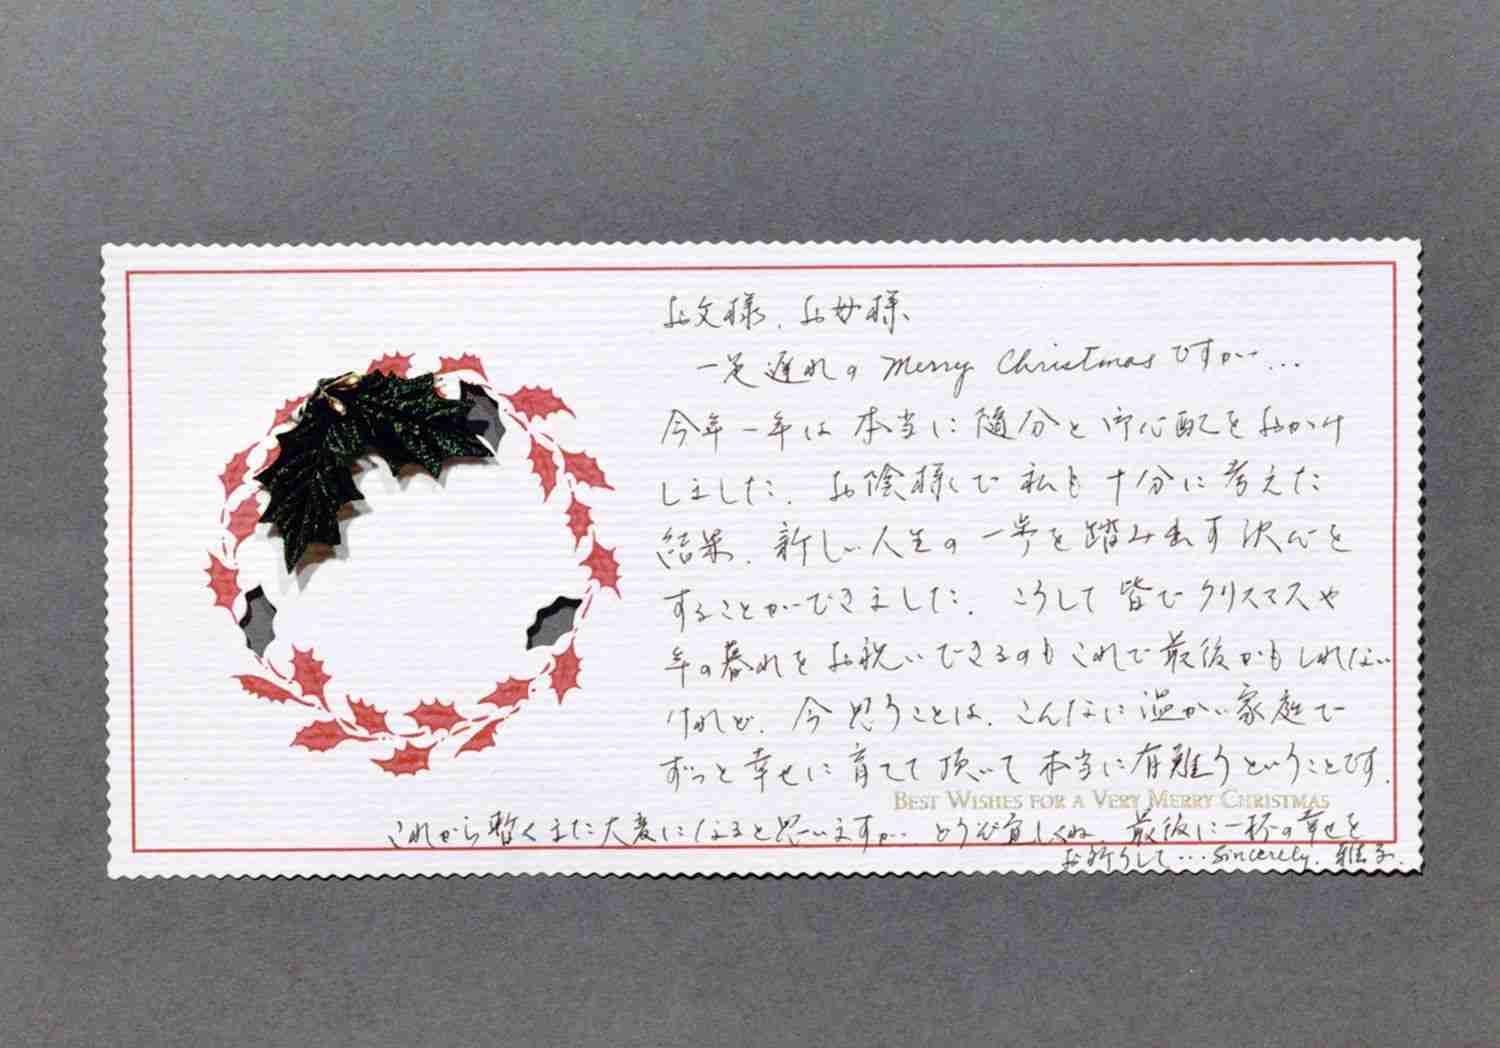 お父様、お母様、
一足遅れの Merry Christmas ですが…
今年一年は本当に随分と御心配をおかけ
しました。お陰様で私も十分に考えた
結果、新しい人生の一歩を踏み出す決心を
することができました。こうして皆でクリスマスや
年の暮れをお祝いできるのもこれで最後かもしれない
けれど、今思うことは、こんなに温かい家庭で
ずっと幸せに育てて頂いて本当に有難うということです。
BEST WISHES FOR A VERY MERRY CHRISTMAS
これから暫くまた大変になると思いますが、どうぞ宜しくね。最後に一杯の幸せを
お祈りして…Sincerely, 雅子.